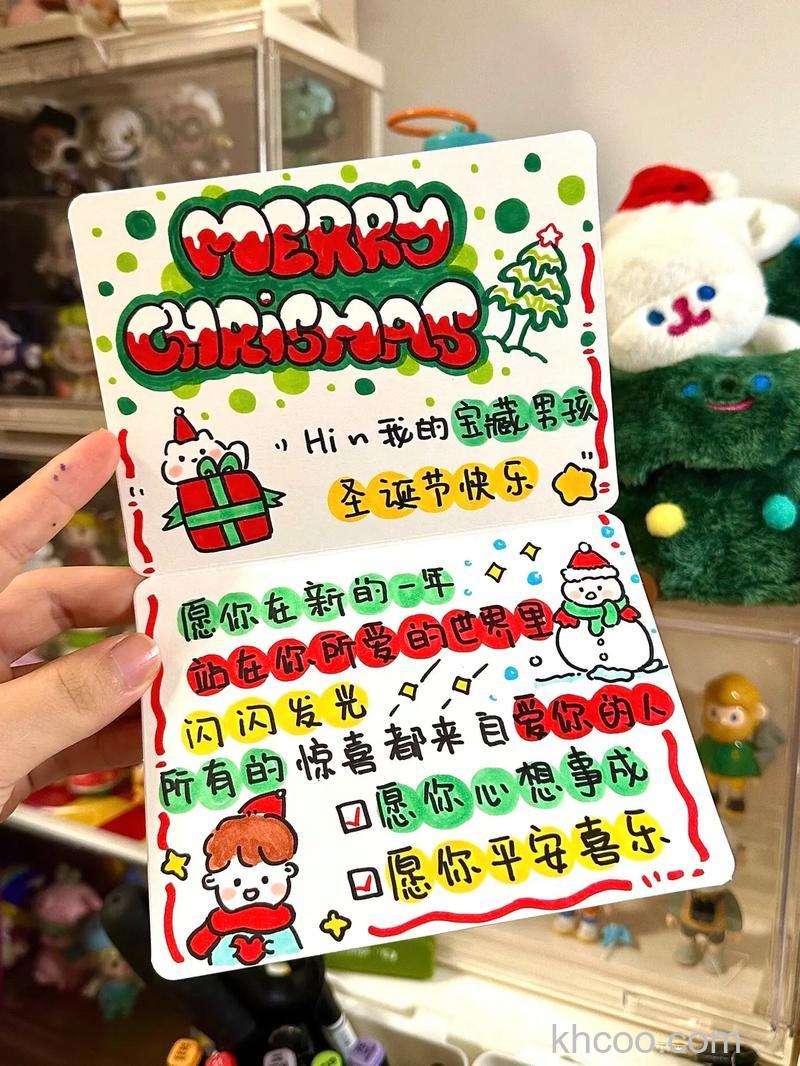 MERRY
CHRiSMAS
" Hi n 我的宝藏男孩
圣诞节快乐
愿你在新的一年
站在你所爱的世界里
闪闪发光
所有的惊喜都来自爱你的人
愿你心想事成
愿你平安喜乐
khcoo.com